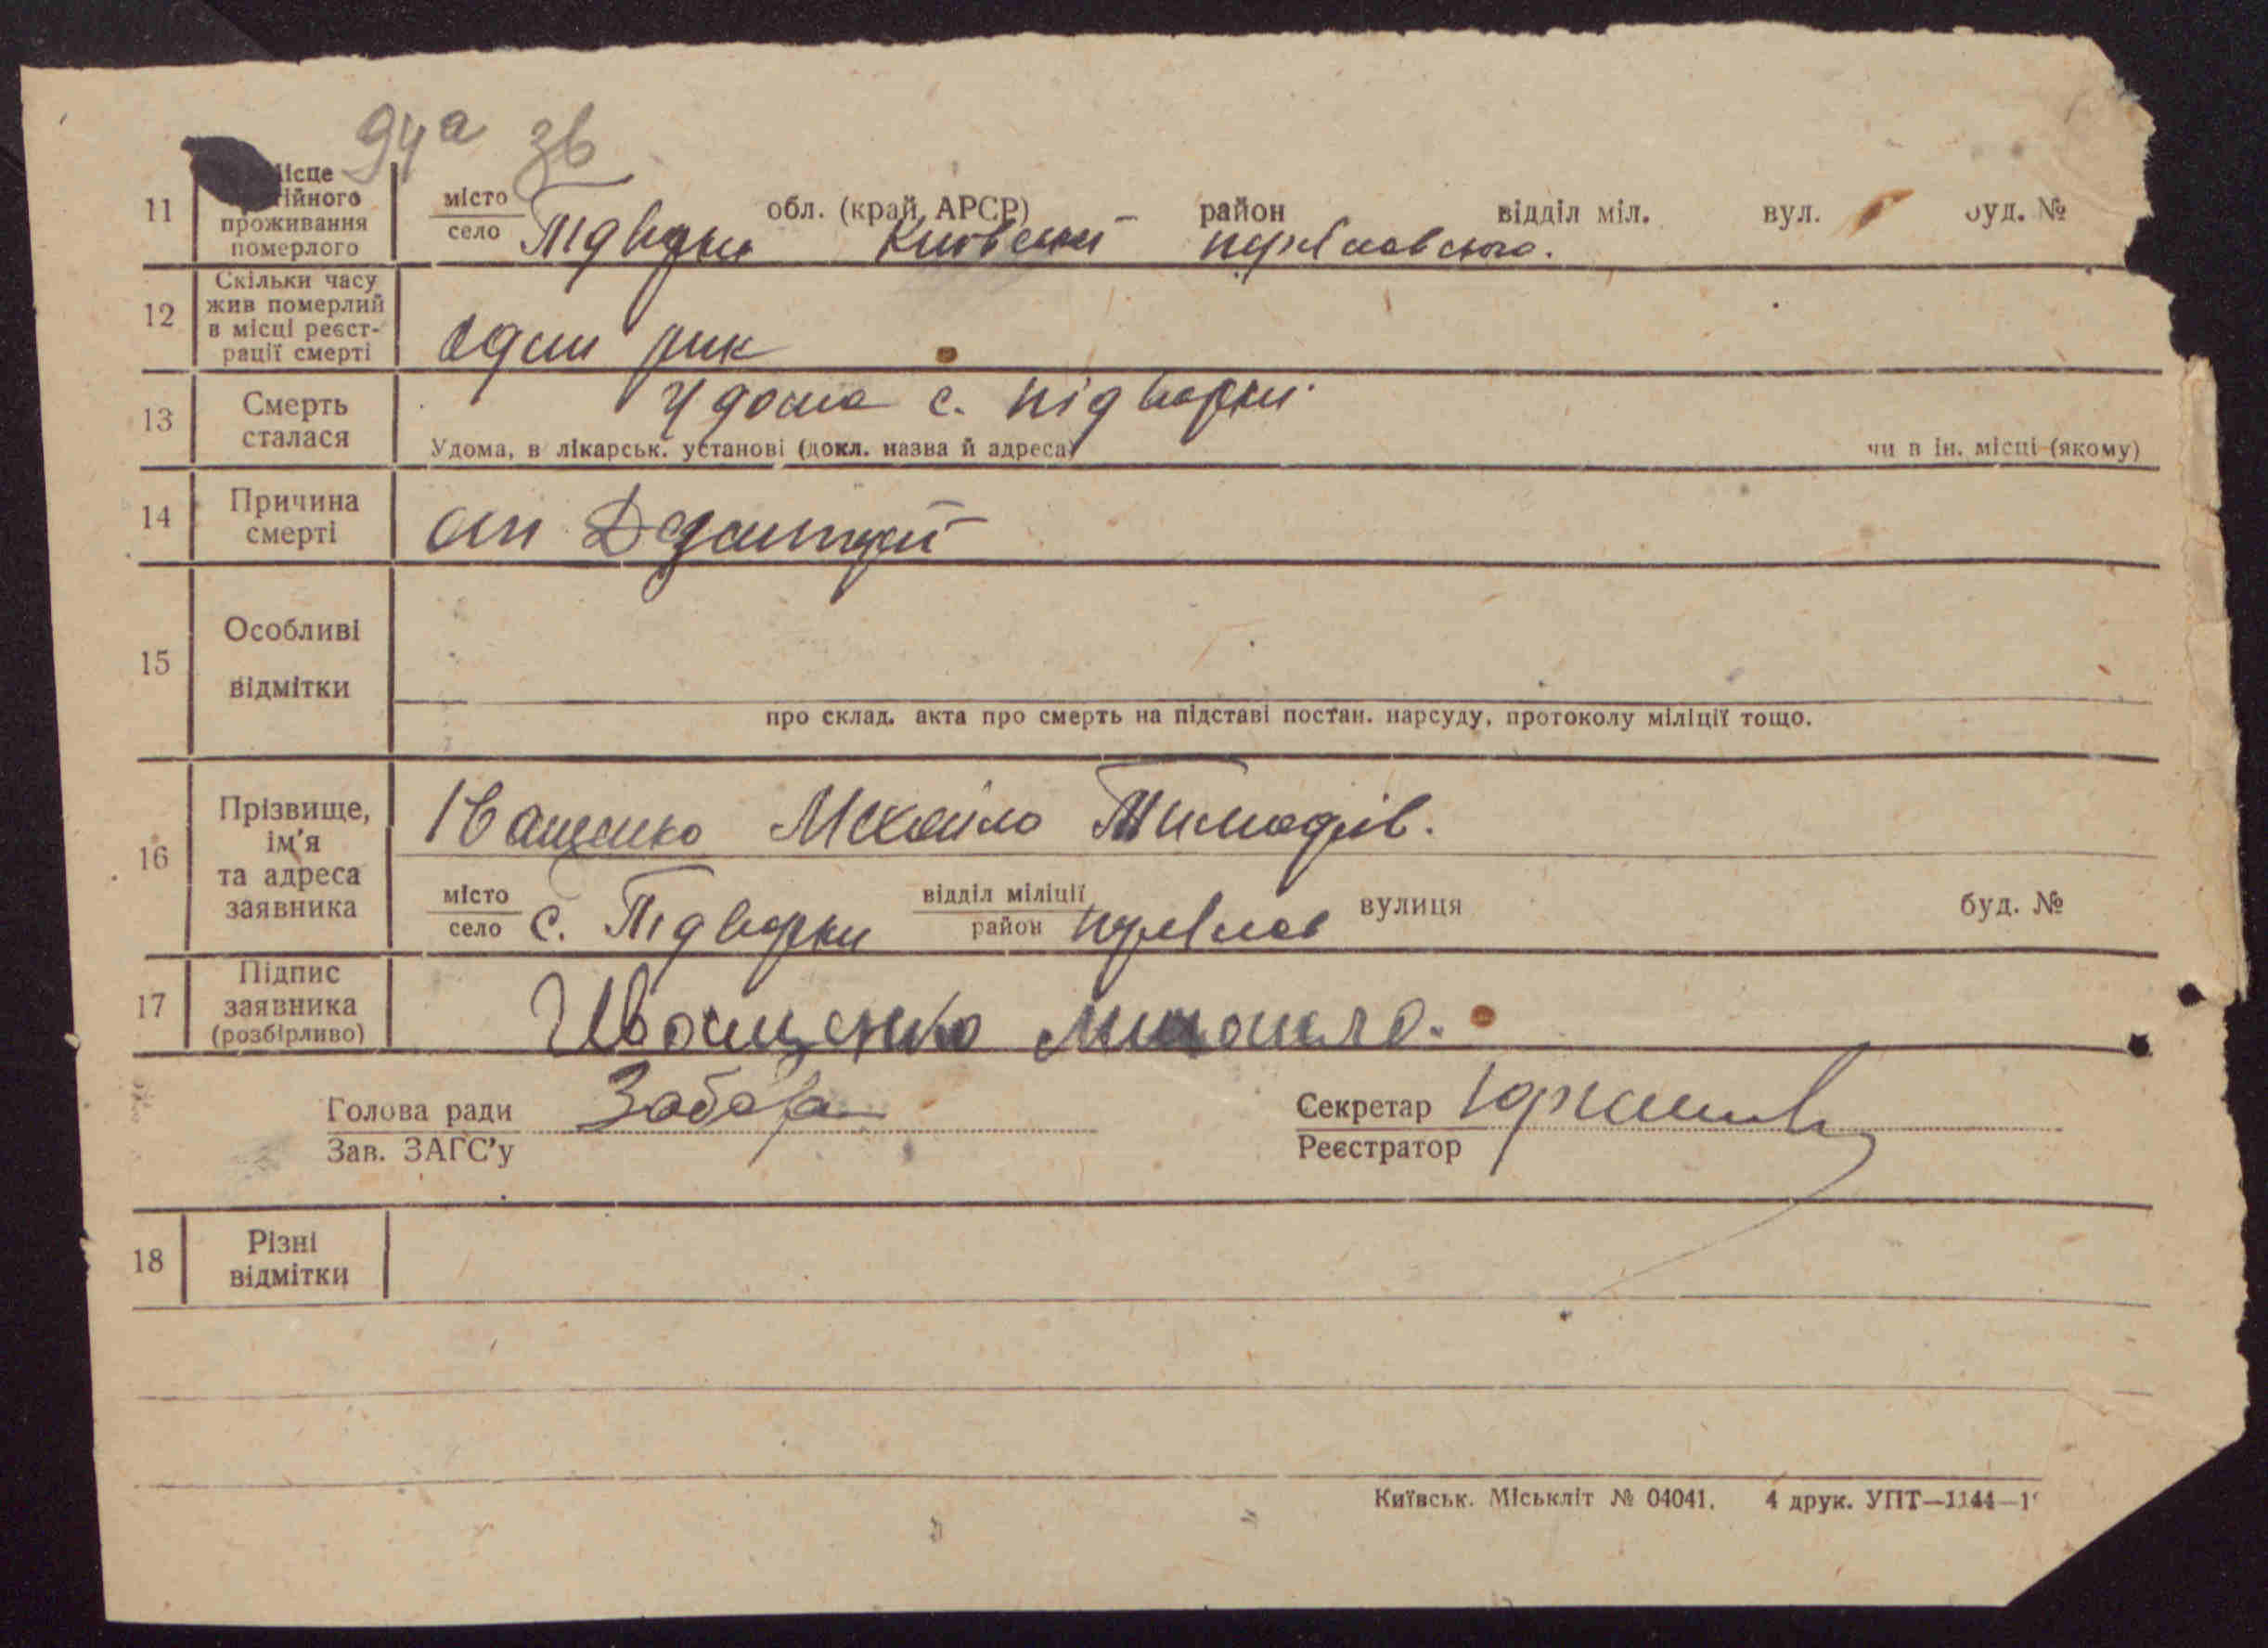 94а зв
11 ісце ійного проживання померлого місто село Підворки обл. (край, АРСР) Київської район переяславського. відділ міл. вул. буд. №
12 Скільки часу жив померлий в місці реєстрації смерті один рик
13 Смерть сталася Удома с. підворки
Удома, в лікарськ. установі (докл. назва й адреса) чи в ін. місці (якому)
14 Причина смерті
15 Особливі відмітки
про склад. акта про смерть на підставі постан. нарсуду, протоколу міліції тощо.
16 Прізвище, ім'я та адреса заявника Іващенко Михайло
місто село с. Підворки відділ міліції район вулиця буд. №
17 Підпис заявника (розбірливо) Иващенко
Голова ради Забара Секретар
Зав. ЗАГС'у Реєстратор
18 Різні відмітки
Київськ. Міськліт № 04041. 4 друк. УПТ—1144—1